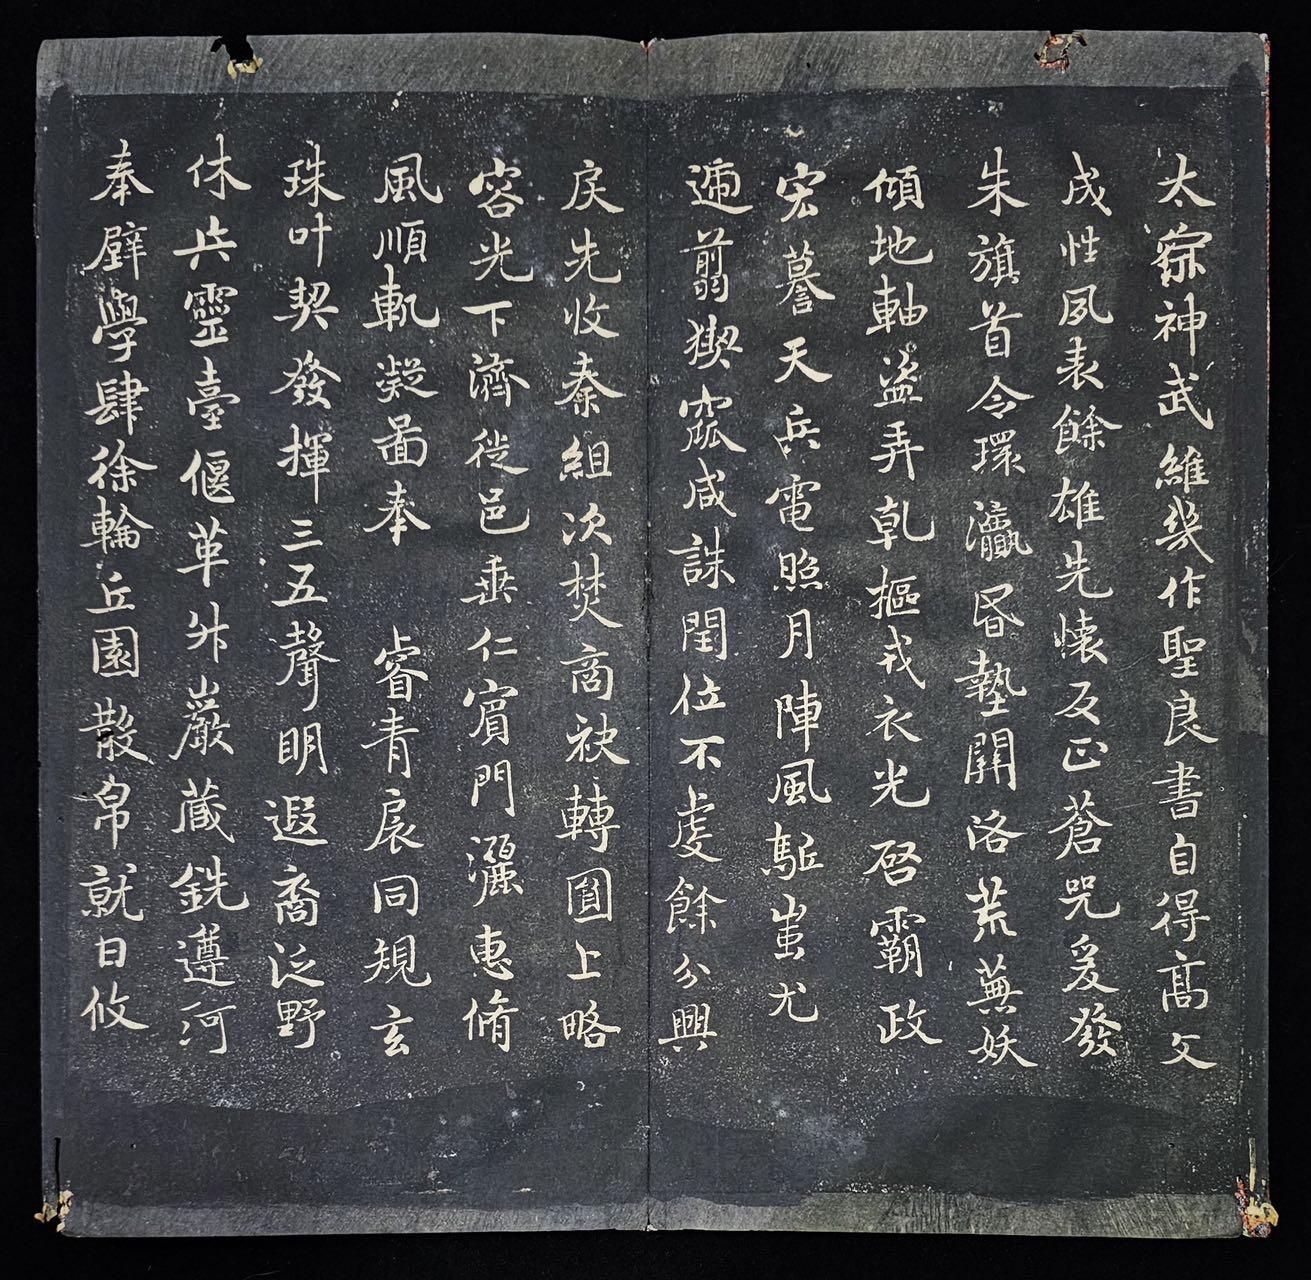 太宗神武維幾作聖良書自得高文
成性夙表餘雄先懷反正蒼兕爰發
朱旗首令環瀛昏墊關洛荒蕪妖
傾地軸盜弄乾樞戎衣光啓霸政
宏謩天兵電照月陣風駈蚩尤
遞翦猰窳咸誅閏位不虔餘分興
戾先收秦組次焚商袂轉圓上略
容光下濟徙邑垂仁賓門灑惠脩
風順軌凝圖奉 睿青扆同規玄
珠叶契發揮三五聲明遐裔泛野
休兵靈臺偃革升巖蔵銑遵河
奉璧學肆徐輪丘園散帛就日攸